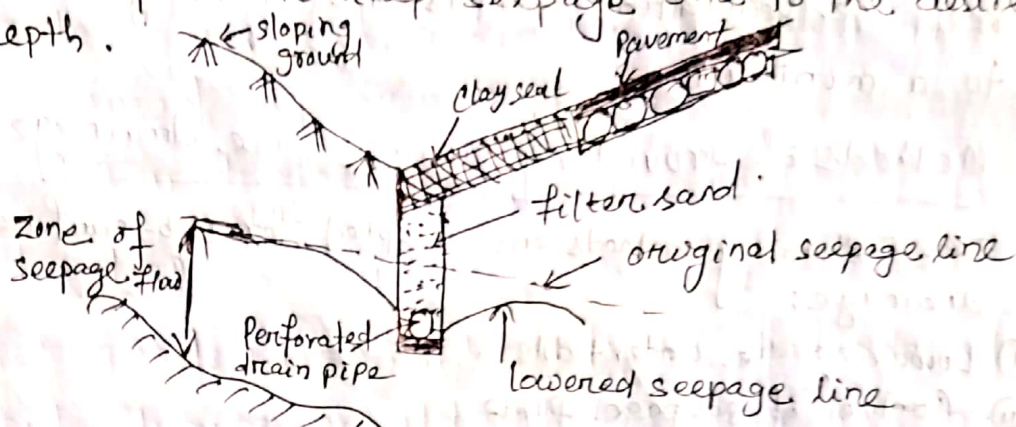 epth.
sloping
ground
Pavement
Clay seal
filter sand.
Zone of
seepage flow
original seepage line
Perforated
drain pipe
lowered seepage line